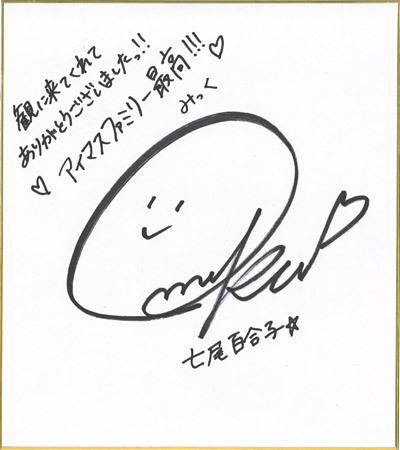 観に来てくれて
ありがとうございましたっ!!
♡アイマスファミリー最高!!!♡
みっく
七尾百合子☆